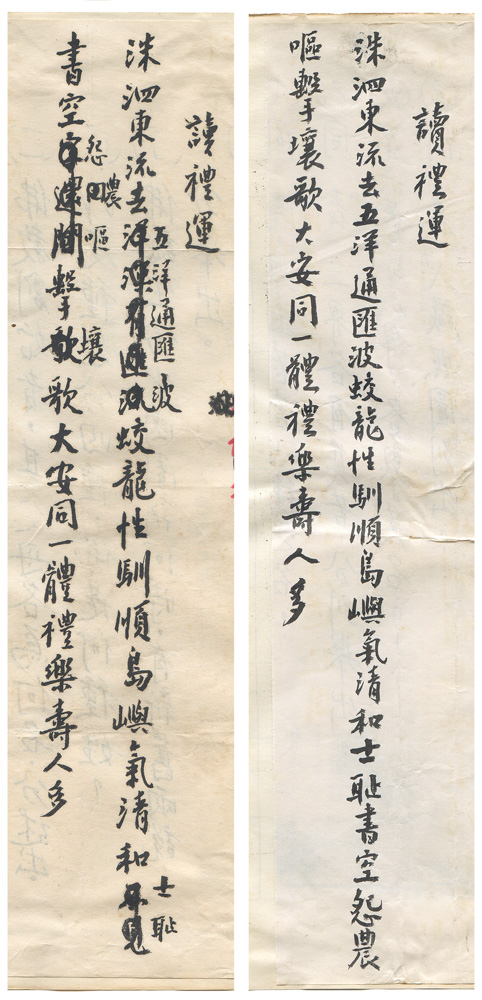 讀禮運
洙泗東流去五洋通匯波蛟龍性馴順島嶼氣清和士耻書空怨農
嘔擊壤歌大安同一體禮樂壽人多
讀禮運
五洋通匯波
士耻
洙泗東流去蛟龍性馴順島嶼氣清和
怨農嘔
壤
書空擊歌大安同一體禮樂壽人多